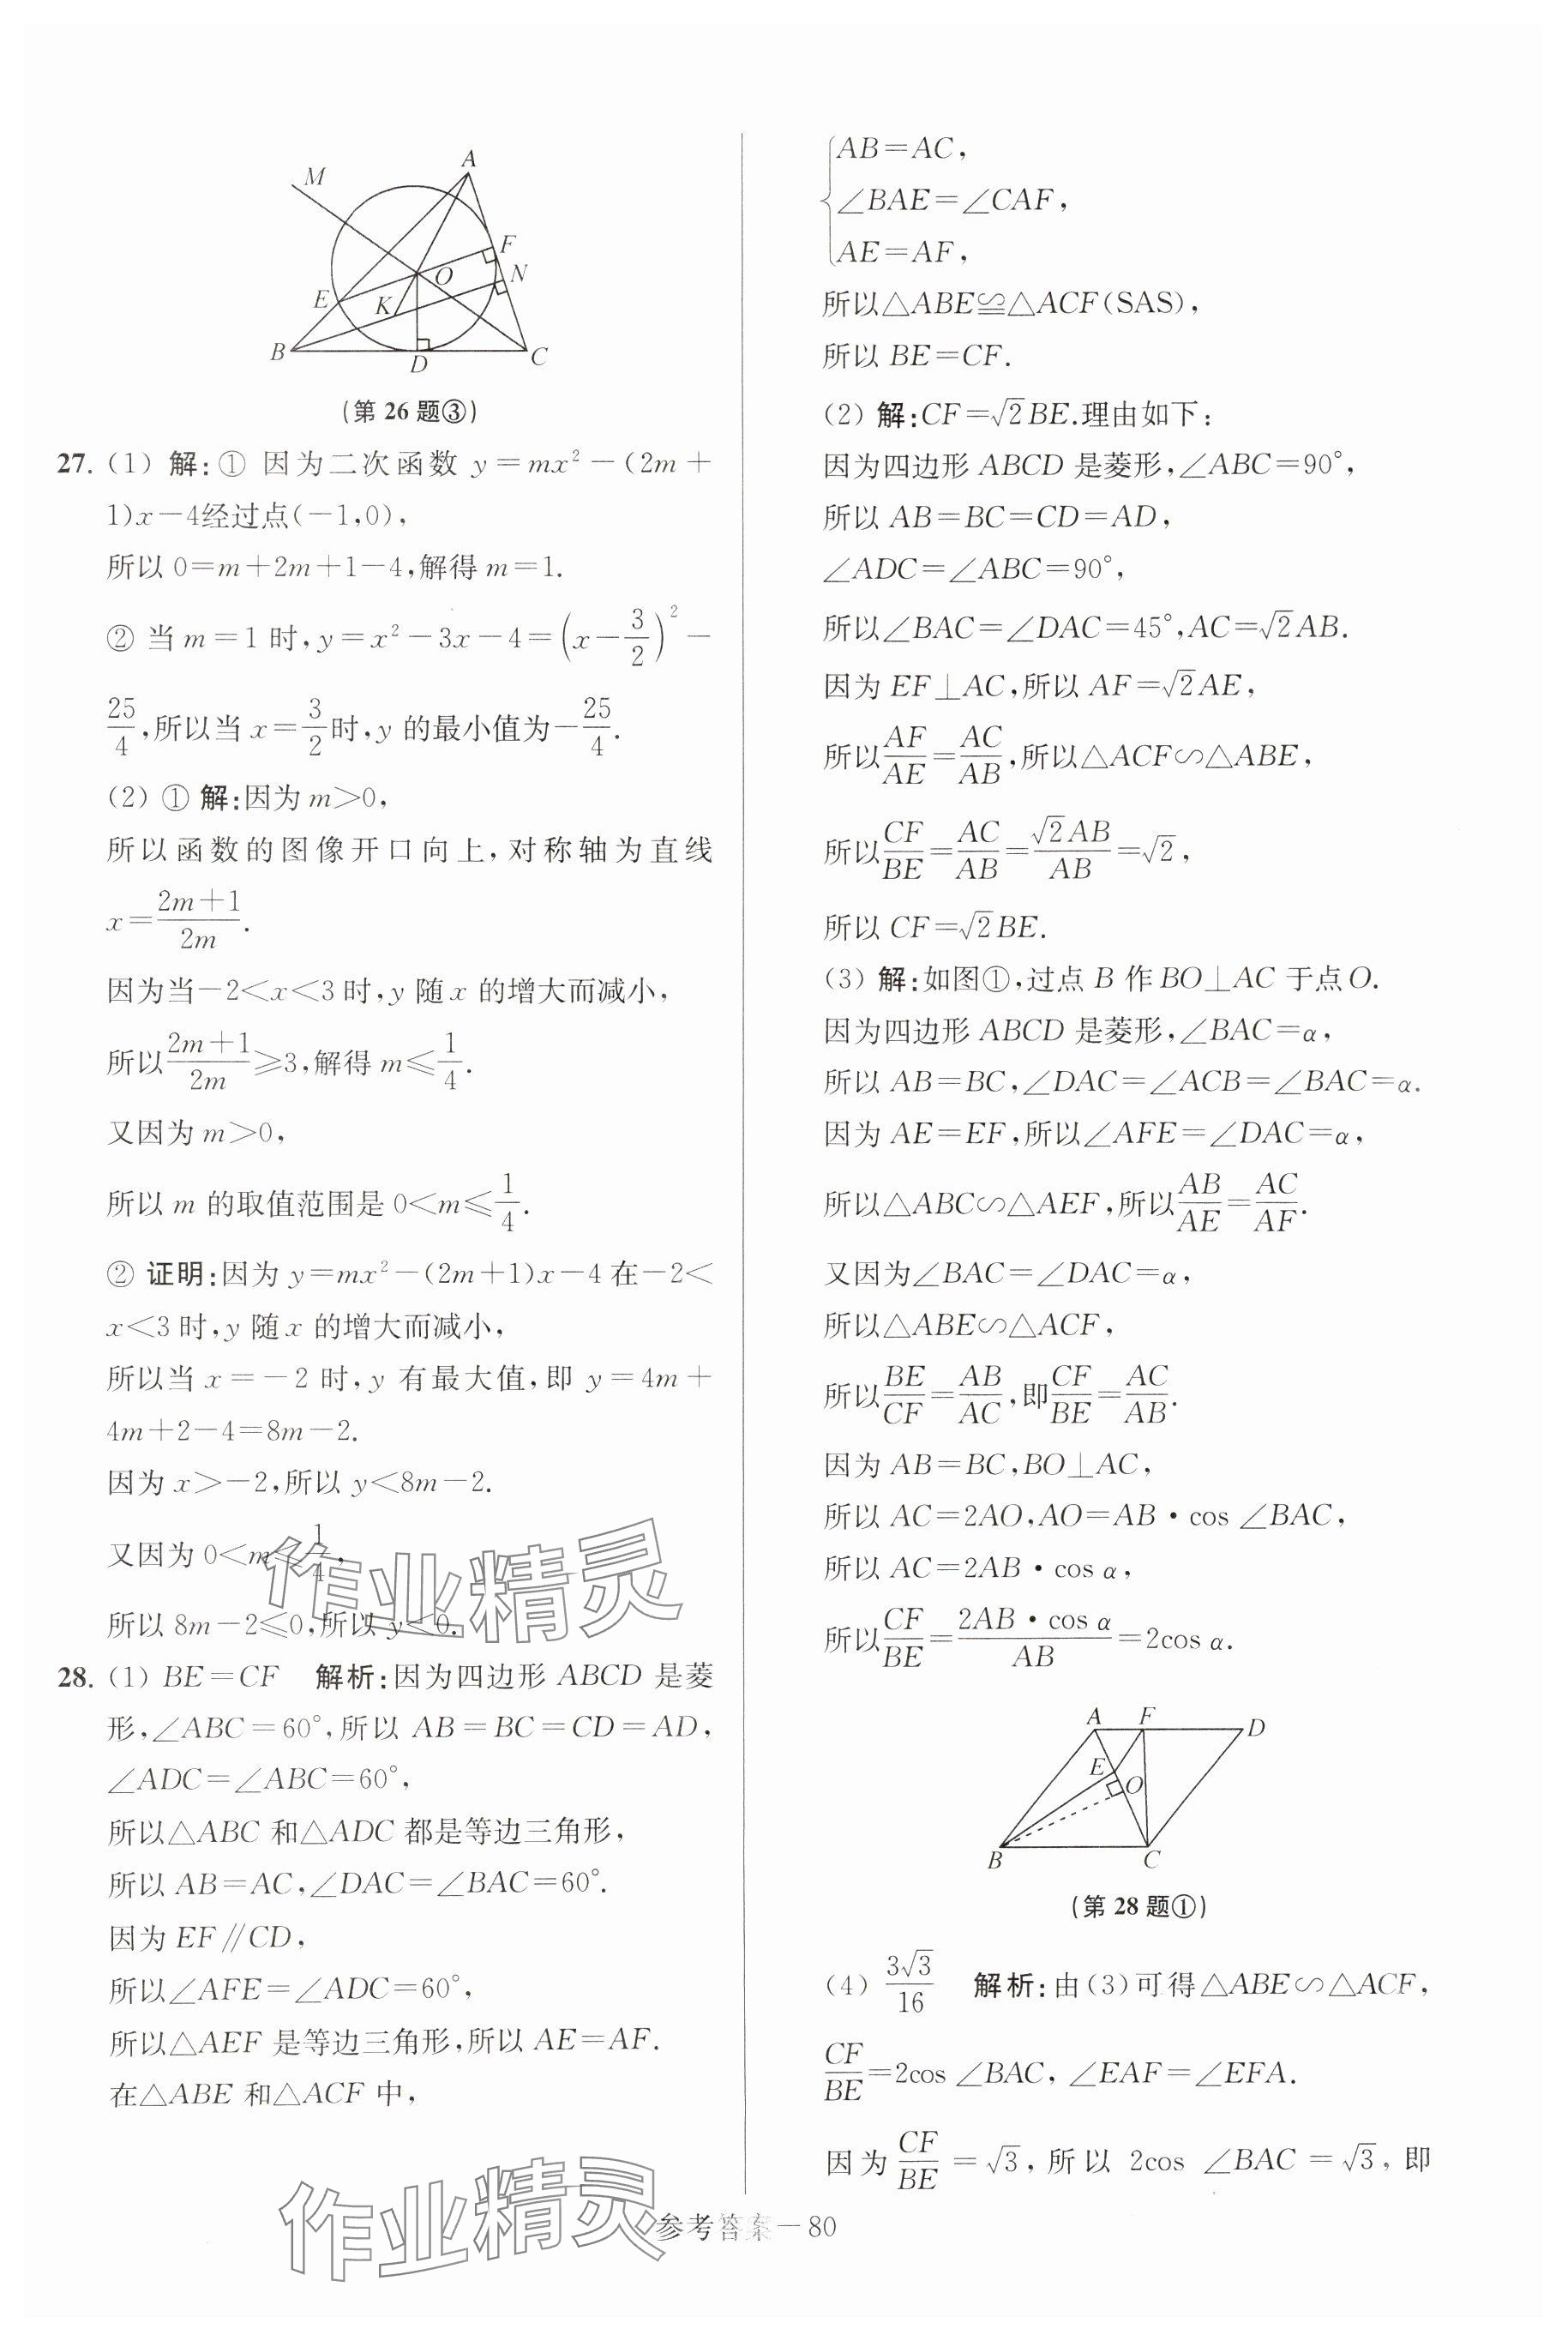 A
M
F
O
N
E
K
B
D
C
(第 26 题③)
27. (1) 解:① 因为二次函数 y=mx²-(2m+
1)x-4经过点(-1,0),
所以 0=m+2m+1-4,解得 m=1.
② 当 m=1 时,y=x²-3x-4=(x-3/2)²-
25/4,所以当 x=3/2时,y 的最小值为-25/4.
(2) ① 解:因为 m>0,
所以函数的图像开口向上,对称轴为直线
x=(2m+1)/(2m).
因为当-2<x<3 时,y 随 x 的增大而减小,
所以(2m+1)/(2m)≥3,解得 m≤1/4.
又因为 m>0,
所以 m 的取值范围是 0<m≤1/4.
② 证明:因为 y=mx²-(2m+1)x-4 在-2<
x<3 时,y 随 x 的增大而减小,
所以当 x=-2 时,y 有最大值,即 y=4m+
4m+2-4=8m-2.
因为 x>-2,所以 y<8m-2.
又因为 0<m≤1/4,
所以 8m-2≤0,所以 y<0.
作业精灵
28. (1) BE=CF 解析:因为四边形 ABCD 是菱
形,∠ABC=60°,所以 AB=BC=CD=AD,
∠ADC=∠ABC=60°,
所以△ABC 和△ADC 都是等边三角形,
所以 AB=AC,∠DAC=∠BAC=60°.
因为 EF∥CD,
所以∠AFE=∠ADC=60°,
所以△AEF 是等边三角形,所以 AE=AF.
在△ABE 和△ACF 中,
{AB=AC,
∠BAE=∠CAF,
AE=AF,
所以△ABE≌△ACF(SAS),
所以 BE=CF.
(2) 解:CF=√2BE.理由如下:
因为四边形 ABCD 是菱形,∠ABC=90°,
所以 AB=BC=CD=AD,
∠ADC=∠ABC=90°,
所以∠BAC=∠DAC=45°,AC=√2AB.
因为 EF⊥AC,所以 AF=√2AE,
所以AF/AE=AC/AB,所以△ACF∽△ABE,
所以CF/BE=AC/AB=√2AB/AB=√2,
所以 CF=√2BE.
(3) 解:如图①,过点 B 作 BO⊥AC 于点O.
因为四边形 ABCD 是菱形,∠BAC=α,
所以 AB=BC,∠DAC=∠ACB=∠BAC=α.
因为 AE=EF,所以∠AFE=∠DAC=α,
所以△ABC∽△AEF,所以AB/AE=AC/AF.
又因为∠BAC=∠DAC=α,
所以△ABE∽△ACF,
所以BE/CF=AB/AC,即CF/BE=AC/AB.
因为 AB=BC,BO⊥AC,
所以 AC=2AO,AO=AB·cos ∠BAC,
所以 AC=2AB·cos α,
所以CF/BE=(2AB·cos α)/AB=2cos α.
A F D
E
O
B C
(第 28 题①)
(4) 3√3/16 解析:由(3)可得△ABE∽△ACF,
CF/BE=2cos ∠BAC, ∠EAF=∠EFA.
因为 CF/BE=√3, 所以 2cos ∠BAC=√3, 即
作业精灵
参考答案—80